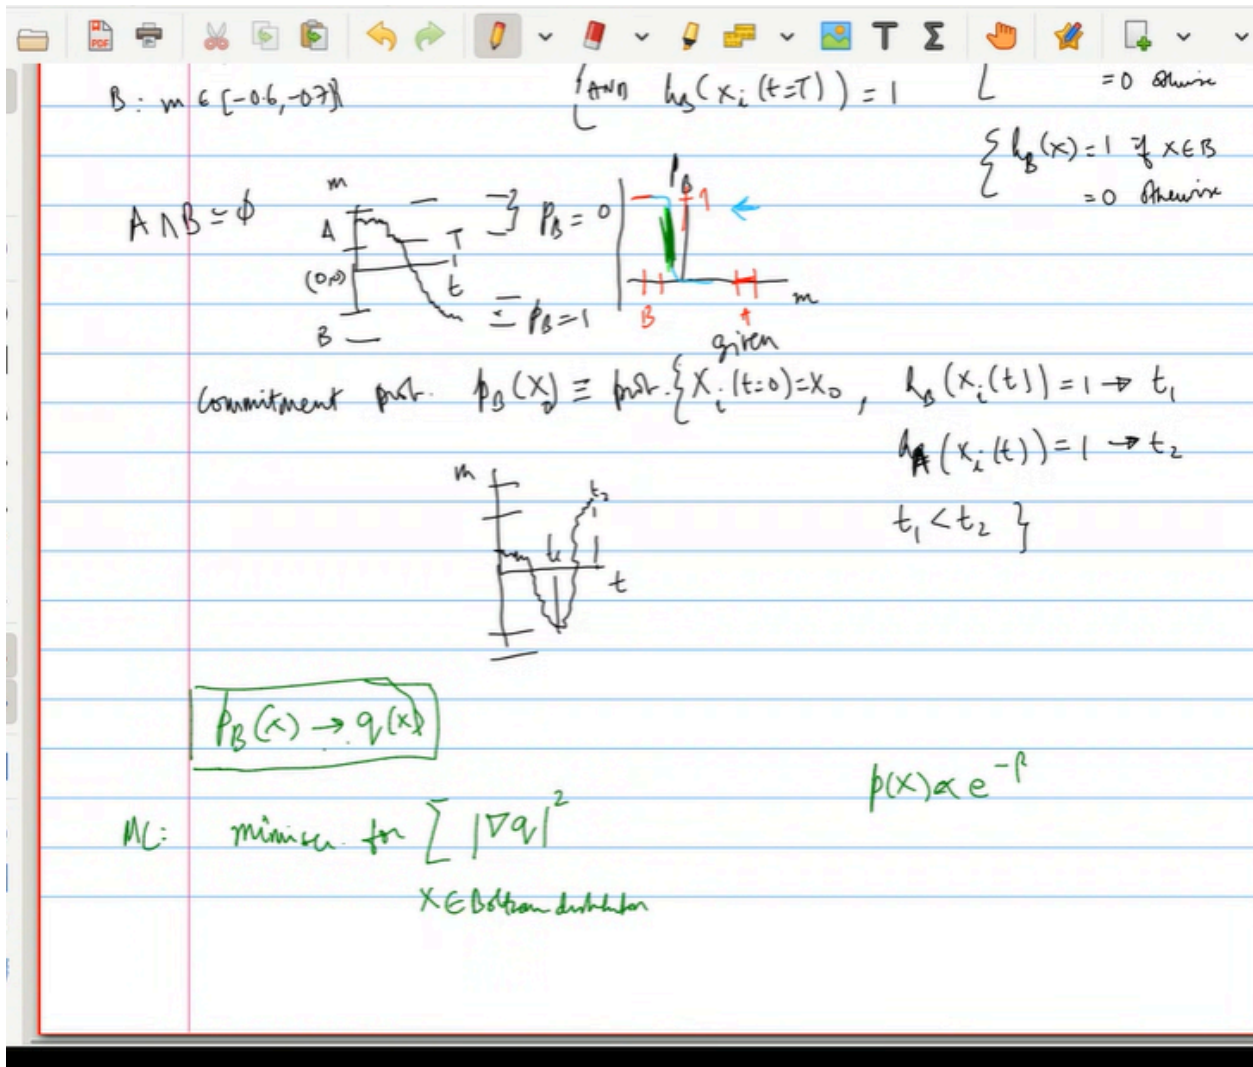 B : m ∈ [-0.6, -0.7]}
{ AND h_B(x_i(t=T)) = 1
= 0 otherwise
{ h_B(x) = 1 if x ∈ B
= 0 otherwise
A ∩ B = ϕ
m
A
(0,0)
B
T
t
} P_B = 0
P_B = 1
P_B
1
B
A
m
given
Commitment prob. p_B(x_0) ≡ prob. { X_i(t=0) = x_0 , h_B(x_i(t)) = 1 → t_1
h_A(x_i(t)) = 1 → t_2
t_1 < t_2 }
m
t_2
t
P_B(x) → q(x)
p(x) ∝ e^{-β
MC: for Σ |∇q|^2
X ∈ Boltzman distribution
PDF
T Σ